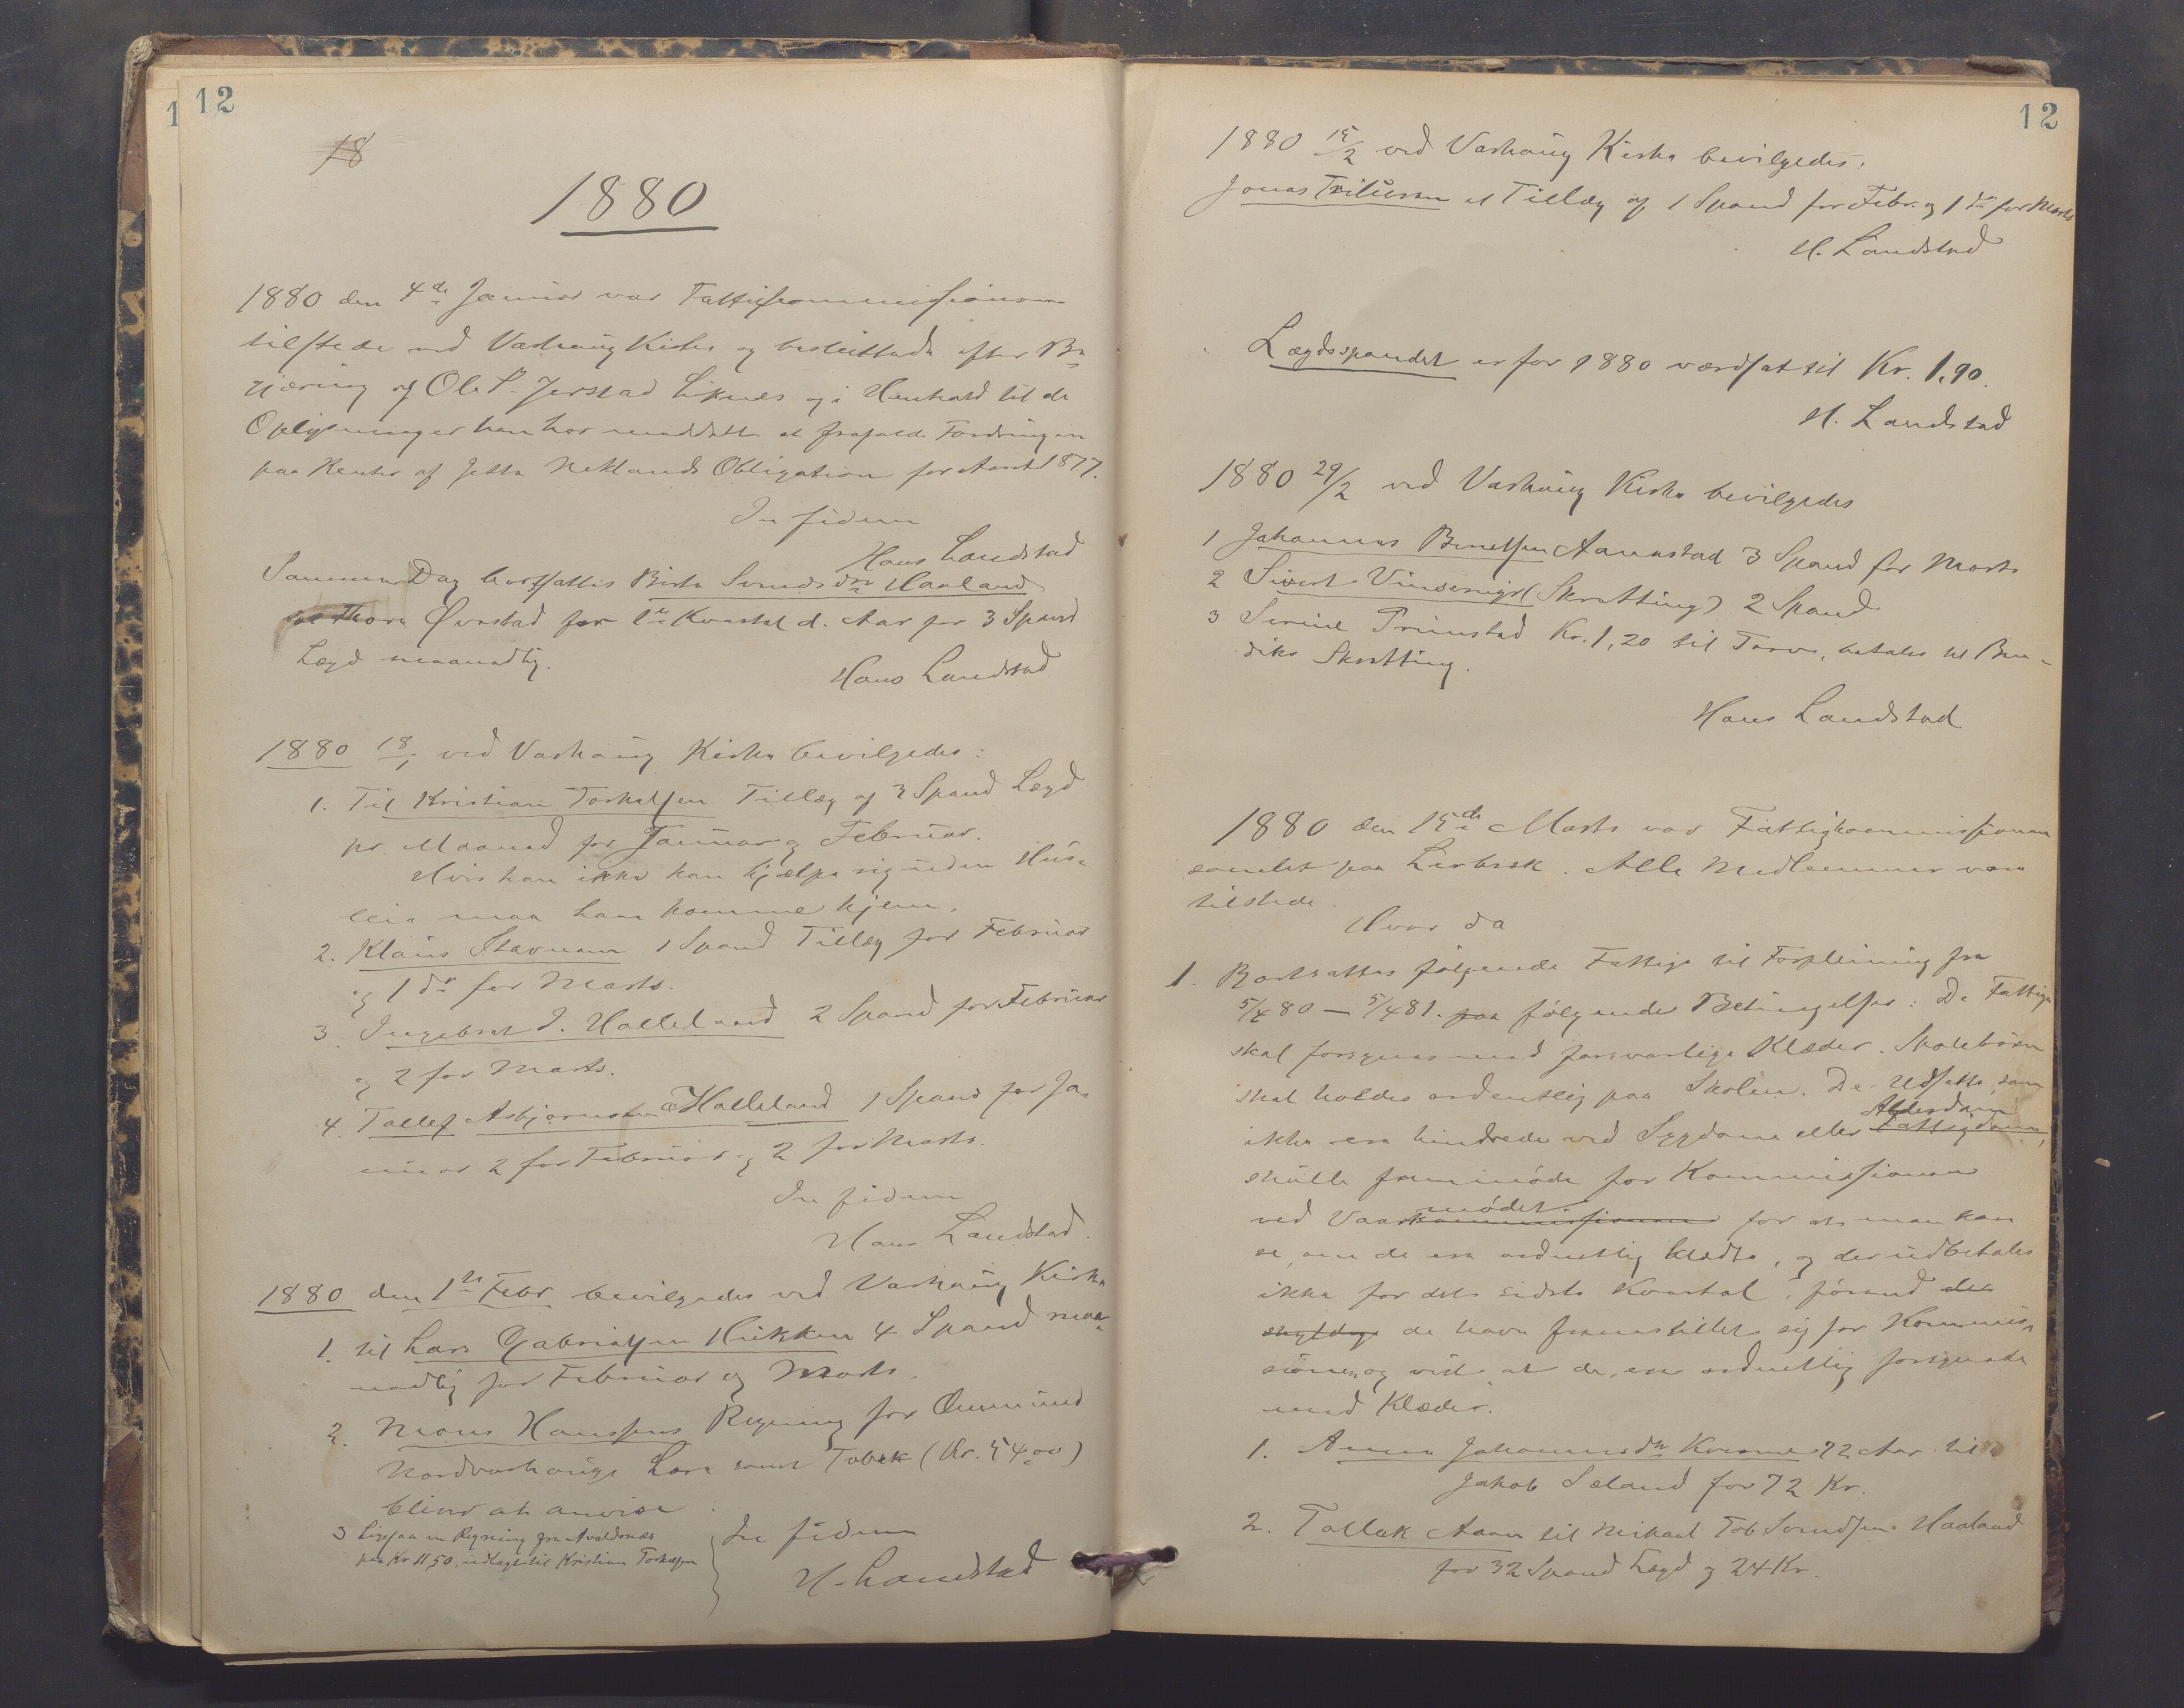 1
12
18
1880
1880 den 4de Januar var Fattigkommissionen
tilstede ved Varhaug Kirke og besluttede efter Be=
gjæring af Ole S. Jerstad Liknes og i Henhold til de
Oplysninger han har meddelt at frafalde Fordringen
paa Renter af Jetta Neklands Obligation for Aaret 1877.
In fidem
Hans Landstad
Samme Dag bortsattes Berta Svendsdtr Haaland
Øvrstad for 1ste Kvartal d. Aar for 3 Spand
Lægd maanedlig.
Hans Landstad
1880 18/1 ved Varhaug Kirke bevilgedes:
1. Til Kristian Torkelsen Tillæg af 3 Spand Lægd
pr. Maaned for Januar og Februar.
Hvis han ikke kan hjælpe sig uden Hus=
leie maa han komme hjem.
2. Klaus Stavnem 1 Spand Tillæg for Februar
og 1 do for Marts.
3. Ingebret I. Halleland 2 Spand for Februar
og 2 for Marts.
4. Tollef Asbjørnsen Halleland 1 Spand for Ja=
nuar 2 for Februar og 2 for Marts.
In fidem
Hans Landstad.
1880 den 1ste Febr bevilgedes ved Varhaug Kirke
1. til Lars Gabrielsen 4 Spand maa=
nedlig for Februar og Marts.
2. Mons Hansens Regning for Ommund
Nordvarhaugs Lars samt Tobak (Kr. 54.00)
bliver at anvise
3 Ligesaa en Regning fra Avaldsnæs
paa Kr 11,50, udlagt til Kristian Torkelsen
In fidem
H. Landstad
12
1880 15/2 ved Varhaug Kirke bevilgedes:
Jonas et Tillæg af 1 Spand for Febr. og 1 do for Marts
H. Landstad
Lægdsspandet er for 1880 værdsat til Kr. 1,90.
H. Landstad
1880 29/2 ved Varhaug Kirke bevilgedes
1 Johannes Bentsen Aanestad 3 Spand for Marts
2 Sivert (Skratting) 2 Spand
3 Serine Primstad Kr. 1,20 til Torv, betales til Ben=
dik Skratting.
Hans Landstad
1880 den 15de Marts var Fattigkommissionen
samlet paa Lerbrek. Alle Medlemmer vare
tilstede.
Hvor da
1. Bortsattes følgende Fattige til Forpleining fra
5/4 80 — 5/4 81. paa følgende Betingelser: De Fattige
skal forsynes med forsvarlige Klæder. Skolebørn
skal holdes ordentlig paa Skolen. De Udsatte, som
Alderdom
ikke ere hindrede ved Sygdom eller Fattigdom,
skulle fremmøde for Kommissionen
mødet
ved Vaarkommissionen for at man kan
se, om de ere ordentlig klædte, og der udbetales
ikke for det sidste Kvartal, førend der
de have fremstillet sig for Kommis=
sionen og vist at de ere ordentlig forsynede
med Klæder.
1. Anna Johannesdtr Kvame 72 Aar til
Jakob Sæland for 72 Kr.
2. Tollak Aam til Mikael Tob. Svendsen Haaland
for 32 Spand Lægd og 24 Kr.